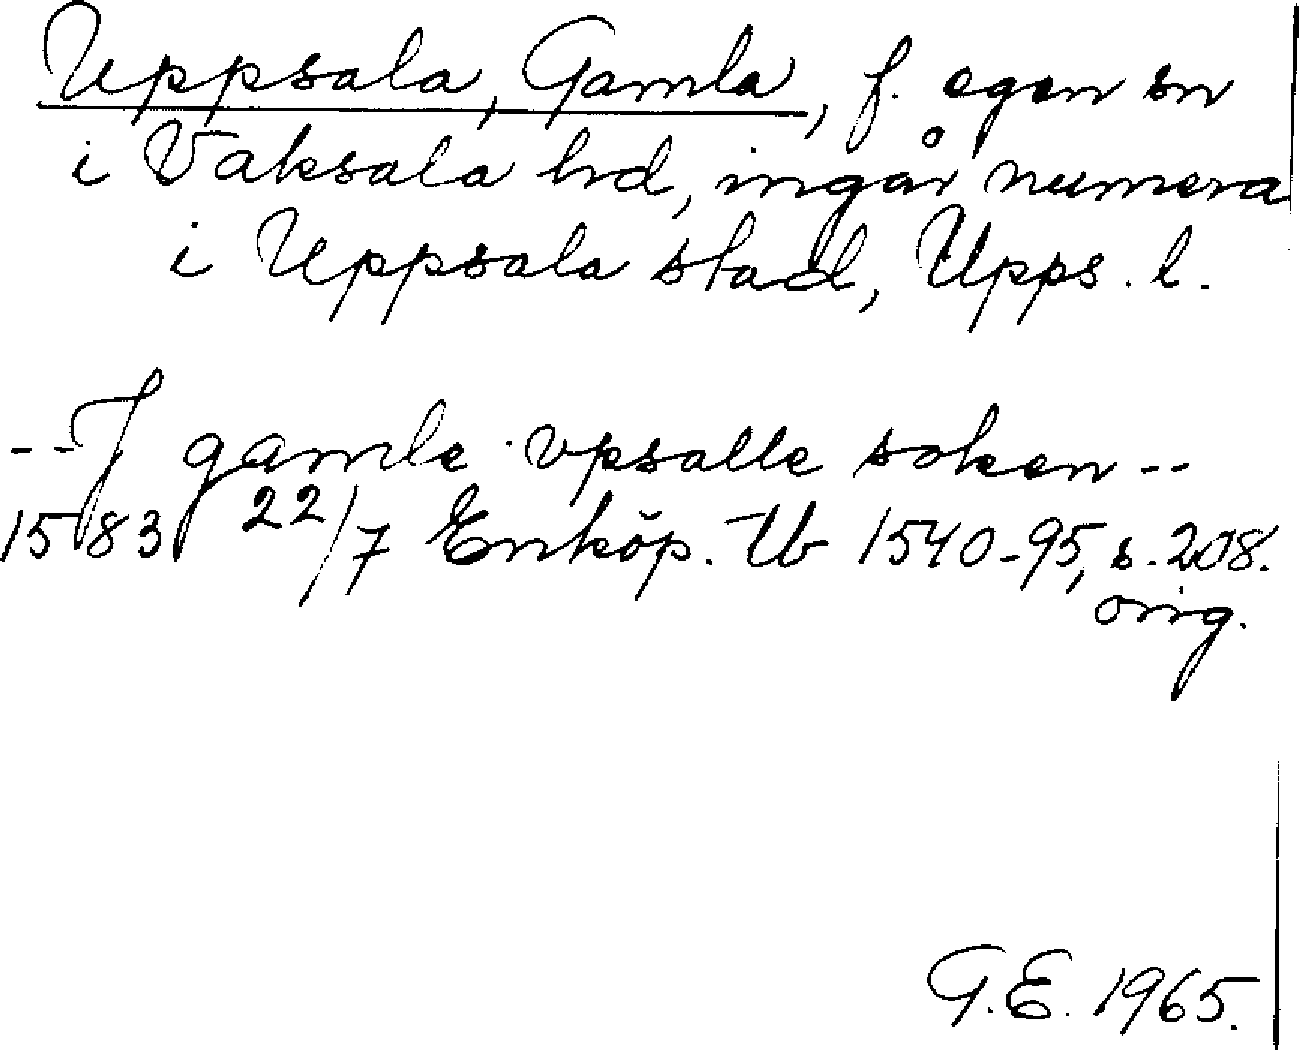 Uppsala, Gamla, f. egen sn
i Vaksala hd, ingår numera
i Uppsala stad, Upps. l.
--J gamle vpsalle soken--
1583 22/7 Enköp. Tb 1540-95, s. 208.
orig.
G.E. 1965.